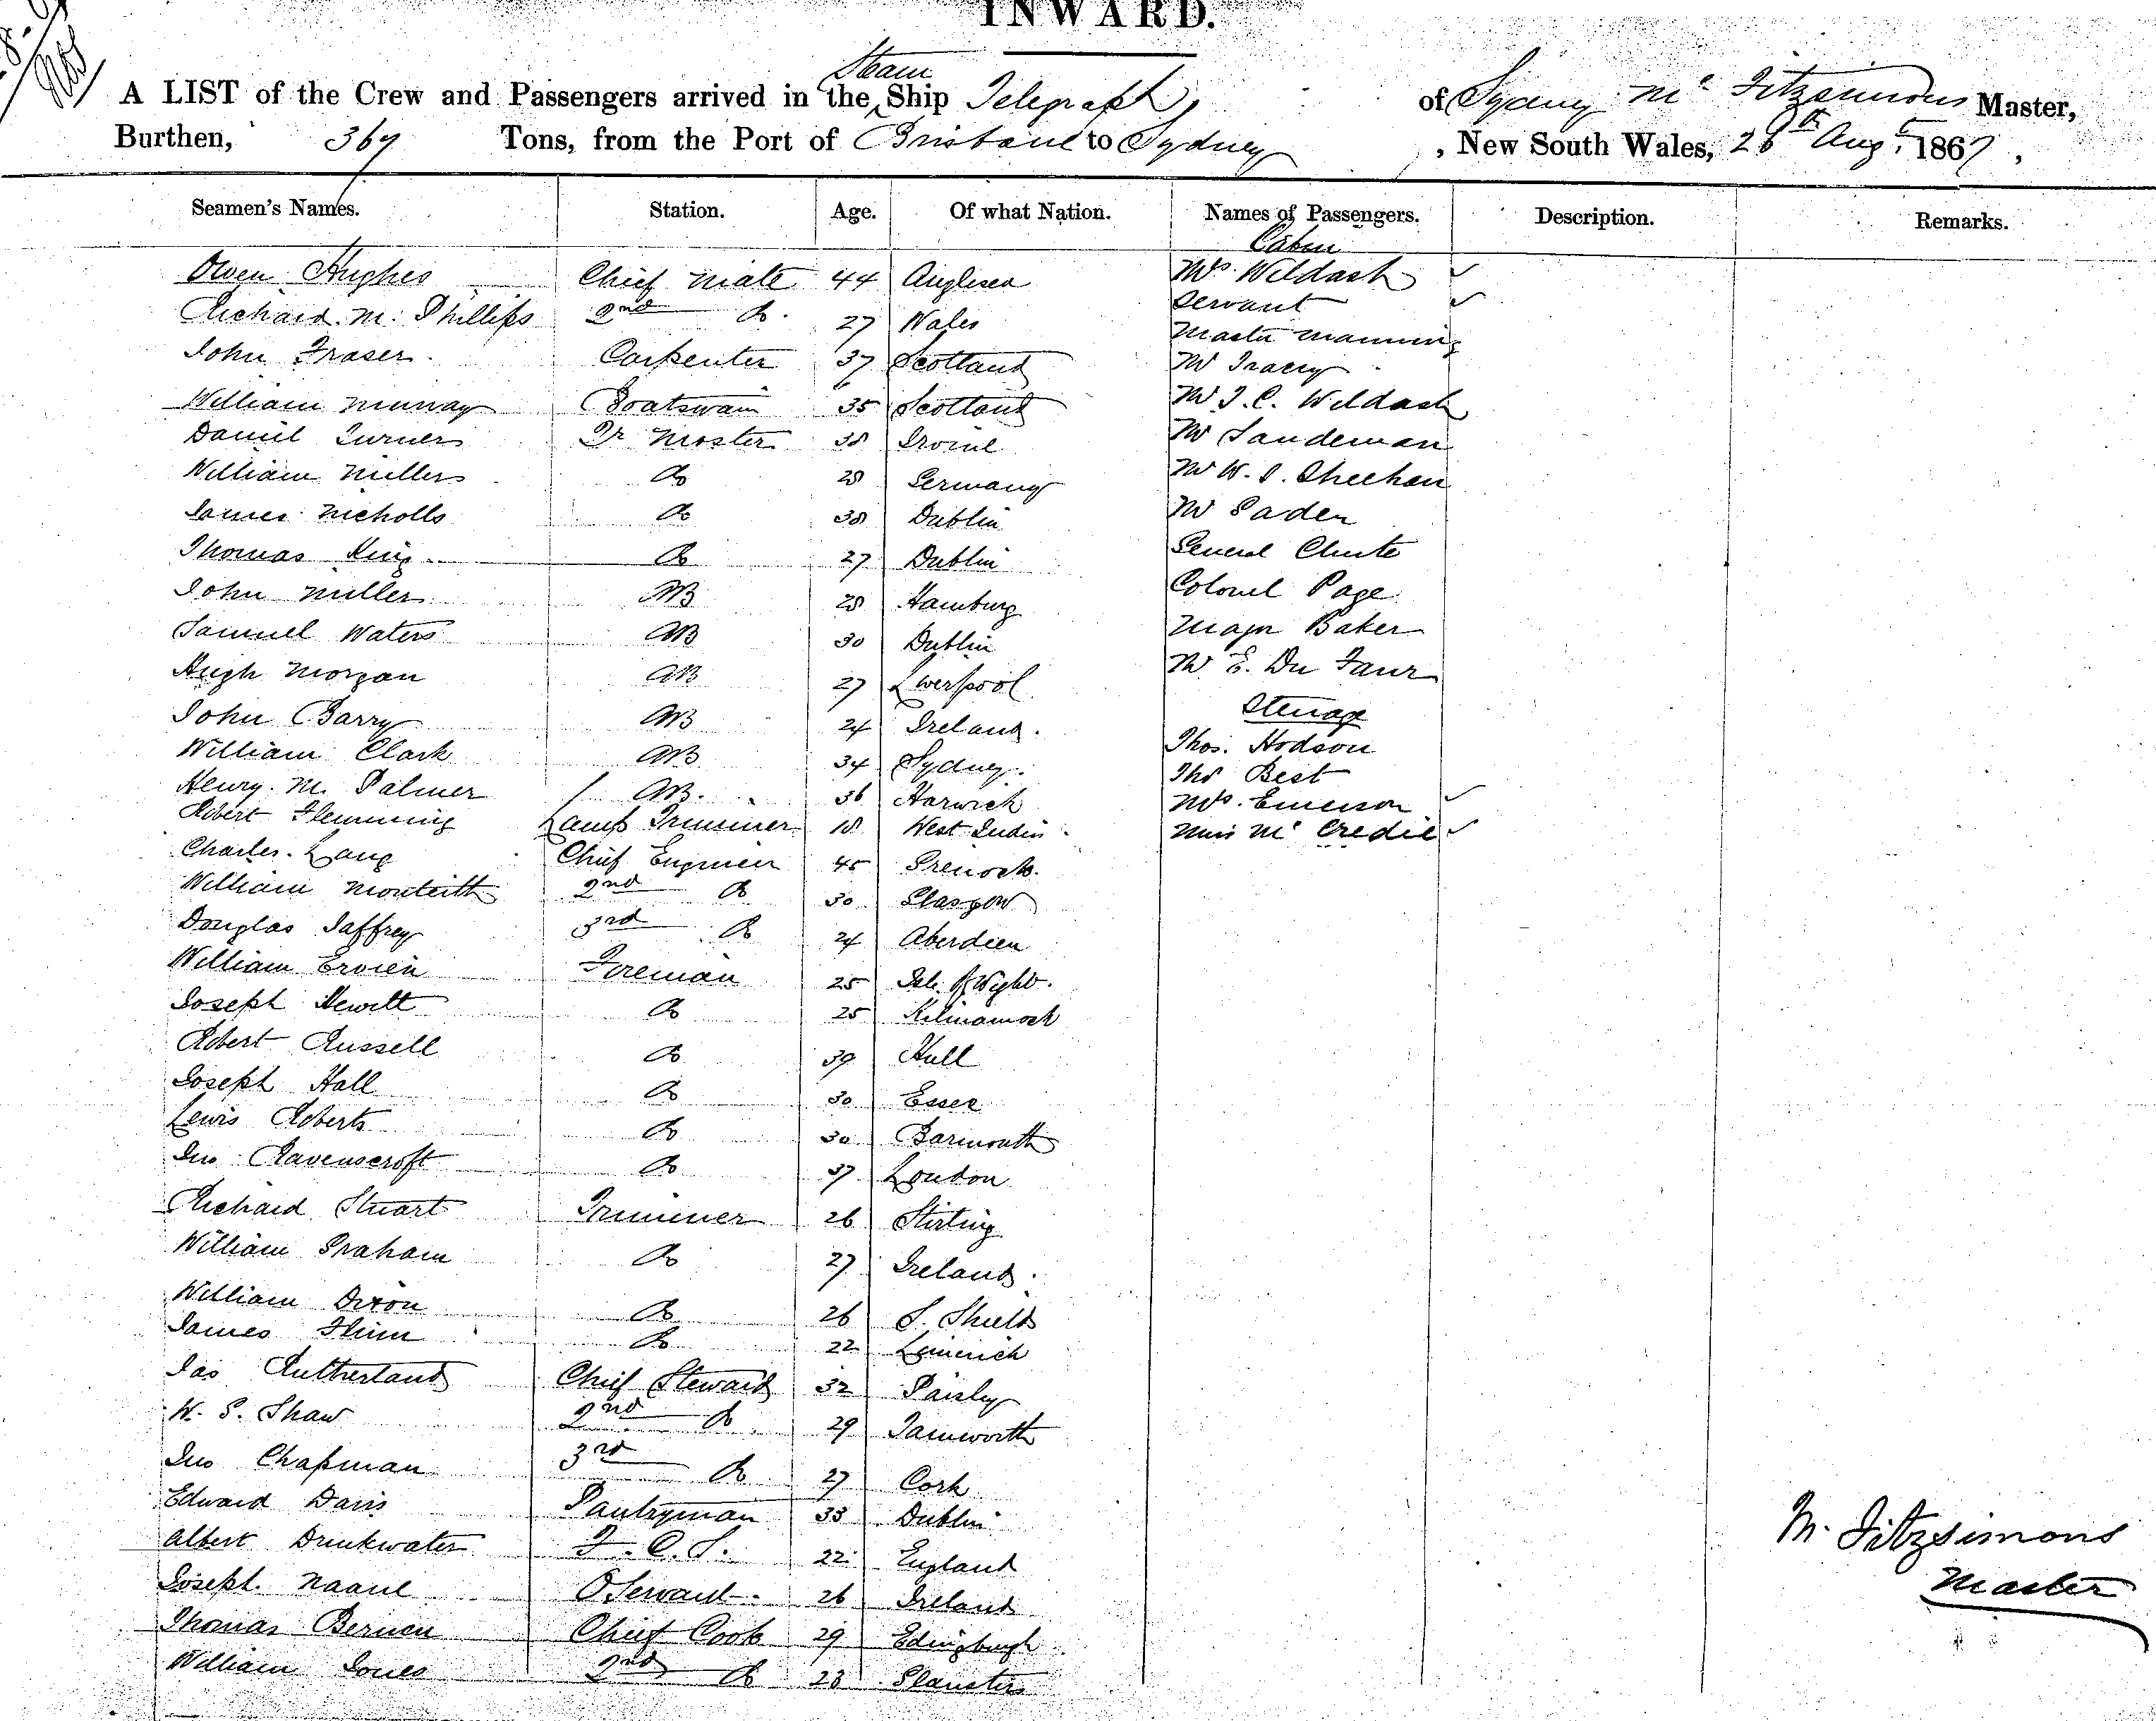 INWARD.
Steam
A LIST of the Crew and Passengers arrived in the Ship Telegraph, of Sydney Mc Fitzsimons Master,
Burthen, 369 Tons, from the Port of Brisbane to Sydney, New South Wales, 28th Augt 1867,
Seamen's Names. Station. Age. Of what Nation. Names of Passengers. Description. Remarks.
Cabin
Owen Hughes Chief Mate 44 Anglesea Mrs Wildash ✓
Richard M. Phillips 2nd Do. 27 Wales Servant ✓
John Fraser. Carpenter 37 Scotland Master Manning
William Murray Boatswain 35 Scotland Mr Tracey
Daniel Turner Qr Master 38 Irvine Mr F. C. Wildash
William Miller Do 28 Germany Mr Sandeman
James Nicholls Do 38 Dublin Mr W. S. Sheehan
Thomas King Do 27 Dublin Mr Pader
John Miller AB 28 Hamburg General Chute
Samuel Waters AB 30 Dublin Colonel Page
Hugh Morgan AB 27 Liverpool Major Baker
John Barry AB 24 Ireland. Mr E. Du Faur
William Clark AB 34 Sydney Steerage
Henry M. Palmer AB. 36 Harwich Thos. Hodson
Robert Flemming Lamp Trimmer 18 West Indies Thos Best
Charles Lang Chief Engineer 45 Greenock Mrs. Emerson ✓
William Monteith 2nd Do 30 Glasgow Miss Mc Credie ✓
Douglas Jaffrey 3rd Do 24 Aberdeen
William Ervien Fireman 25 Isle of Wight.
Joseph Hewitt Do 25 Kilmarnock
Robert Russell Do 39 Hull
Joseph Hall Do 30 Essex
Lewis Roberts Do 30 Barmouth
Jno Ravenscroft Do 37 London
Richard Stuart Trimmer 26 Stirling
William Graham Do 27 Ireland.
William Dixon Do 26 S. Shields
James Flinn Do 22 Limerick
Jas Rutherland Chief Steward 32 Paisley
W. S. Shaw 2nd Do 29 Tamworth
Jno Chapman 3rd Do 27 Cork
Edward Davis Pantryman 33 Dublin
Albert Drinkwater F. C. S. 22 England
Joseph Naanl 26 Ireland
Thomas Bernen Chief Cook 29 Edingburgh
William Jones 2nd Do 23
M. Fitzsimons
Master